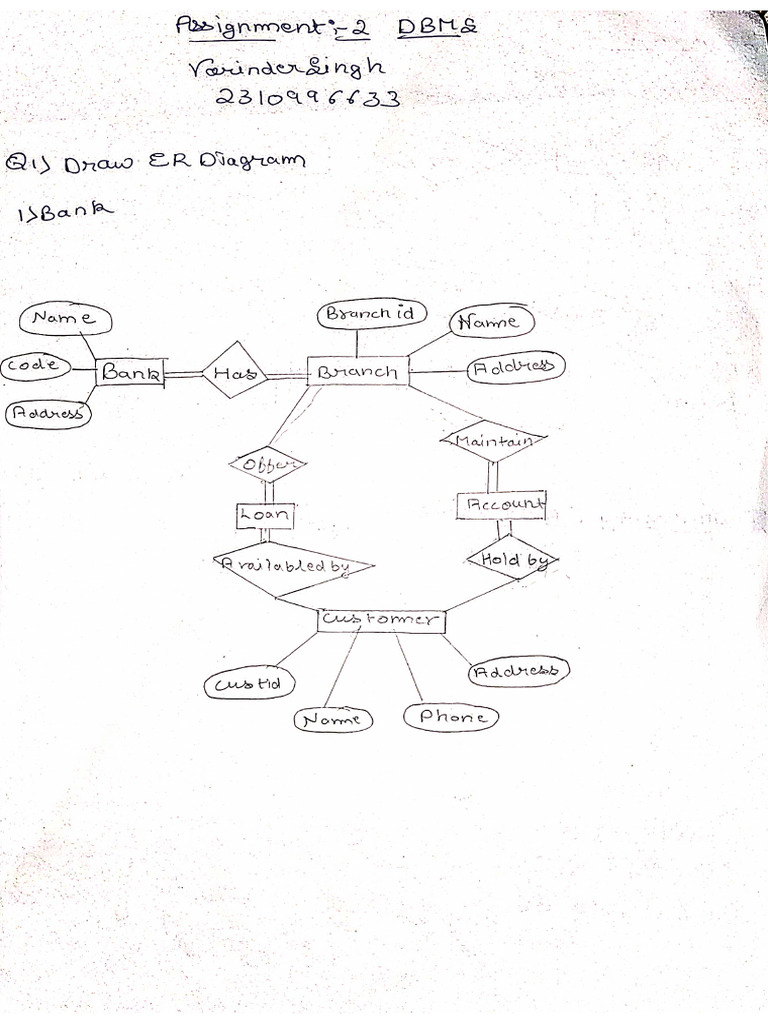 Assignment :- 2 DBMS
Varinder Singh
2310996633
Q1) Draw ER Diagram
1) Bank
Name
Branch id
Name
Code
Bank
Has
Branch
Address
Address
Offer
Maintain
Loan
Account
Availabled by
Hold by
Customer
Cust id
Address
Name
Phone